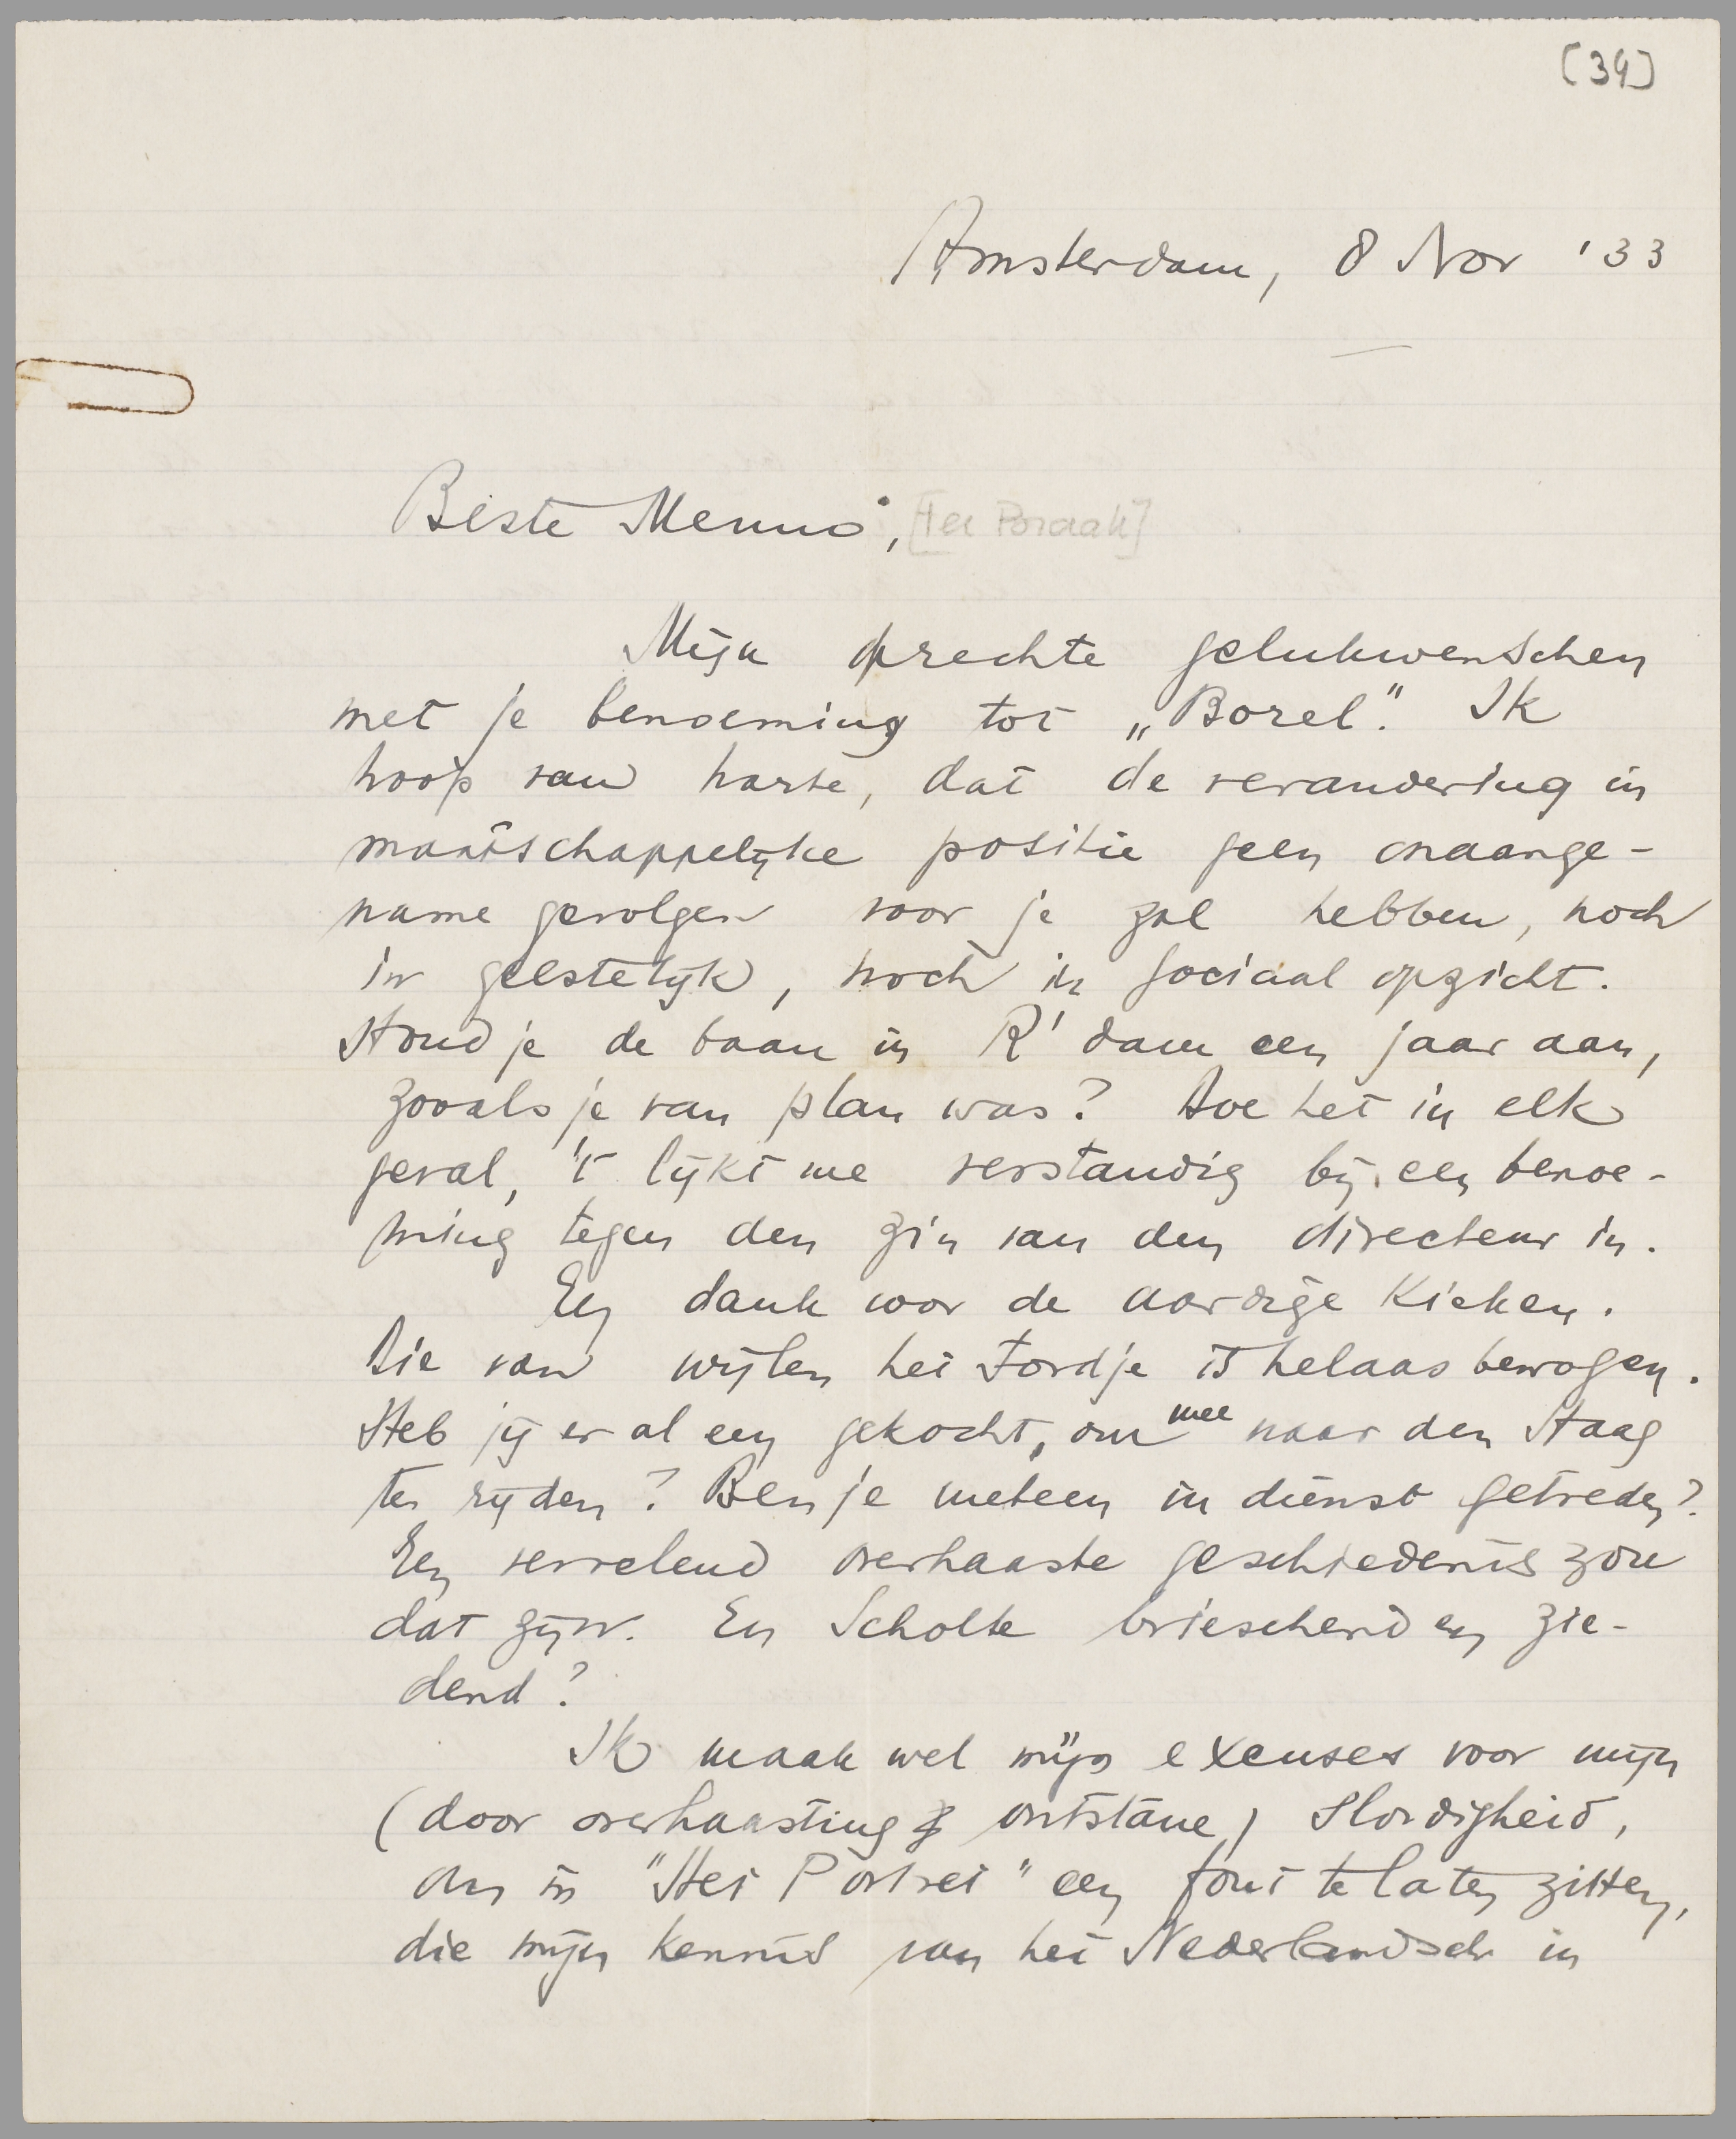 [34]
Amsterdam, 8 Nov '33
Beste Menno, [ter Braak]
Mijn oprechte gelukwenschen
met je benoeming tot „Borel". Ik
hoop van harte, dat de verandering in
maatschappelijke positie geen onaange-
name gevolgen voor je zal hebben, noch
in geestelijk, noch in sociaal opzicht.
Houd je de baan in R'dam een jaar aan,
zooals je van plan was? Doe het in elk
geval, 't lijkt me verstandig bij een benoe-
ming tegen den zin van den directeur in.
En dank voor de aardige kieken.
Die van wijlen het Fordje is helaas bewogen.
Heb jij er al een gekocht, om mee naar den Haag
te rijden? Ben je meteen in dienst getreden?
Een vervelend overhaaste geschiedenis zou
dat zijn. En Scholte brieschend en zie-
dend?
Ik maak wel mijn excuses voor mijn
(door overhaasting ontstane) slordigheid,
om in "Het Portret" een fout te laten zitten,
die mijn kennis van het Nederlandsch in